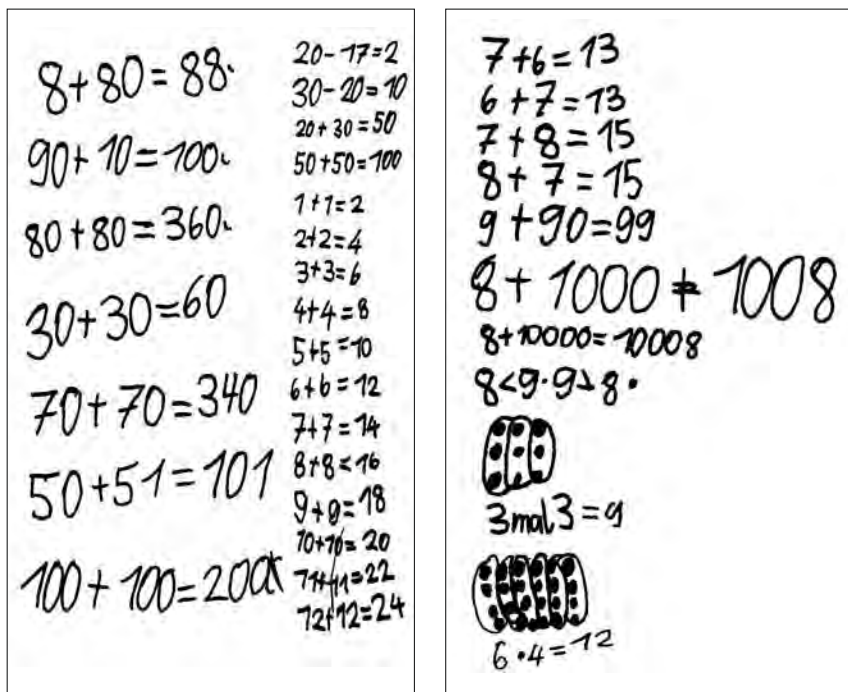 8+80=88.
90+10=100.
80+80=360.
30+30=60
70+70=340
50+51=101
100+100=200
20-17=2
30-20=10
20+30=50
50+50=100
1+1=2
2+2=4
3+3=6
4+4=8
5+5=10
6+6=12
7+7=14
8+8=16
9+9=18
10+10=20
11+11=22
12+12=24
7+6=13
6+7=13
7+8=15
8+7=15
9+90=99
8+1000=1008
8+10000=10008
8<9·9>8.
3mal3=9
6·4=12